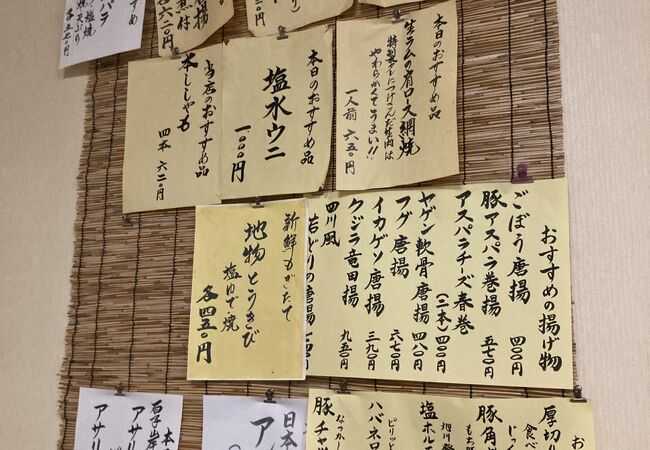 本日のおすすめ品
生ラムの肩ロース網焼
特製タレにつけこんだ生肉は
やわらかくてうまい!!
一人前 六五〇円
本日のおすすめ品
塩水ウニ
一、〇〇〇円
当店のおすすめ品
本ししゃも
四本 六二〇円
おすすめの揚げ物
ごぼう唐揚 四〇〇円
豚アスパラ巻揚 五七〇円
アスパラチーズ春巻 (二本)四〇〇円
ヤゲン軟骨唐揚 四八〇円
フグ唐揚 六七〇円
イカゲソ唐揚 三九〇円
クジラ竜田揚 九五〇円
四川風
若どりの唐揚
新鮮もぎたて
地物とうきび
塩ゆで 焼
各四五〇円
厚切り
食べ
じっく
豚角
もち
塩ホルモ
旭川発
ハバネロ
ピリッと
豚チャッ
なつかし
日本
ア
本
厚岸
アサリ
アサリ